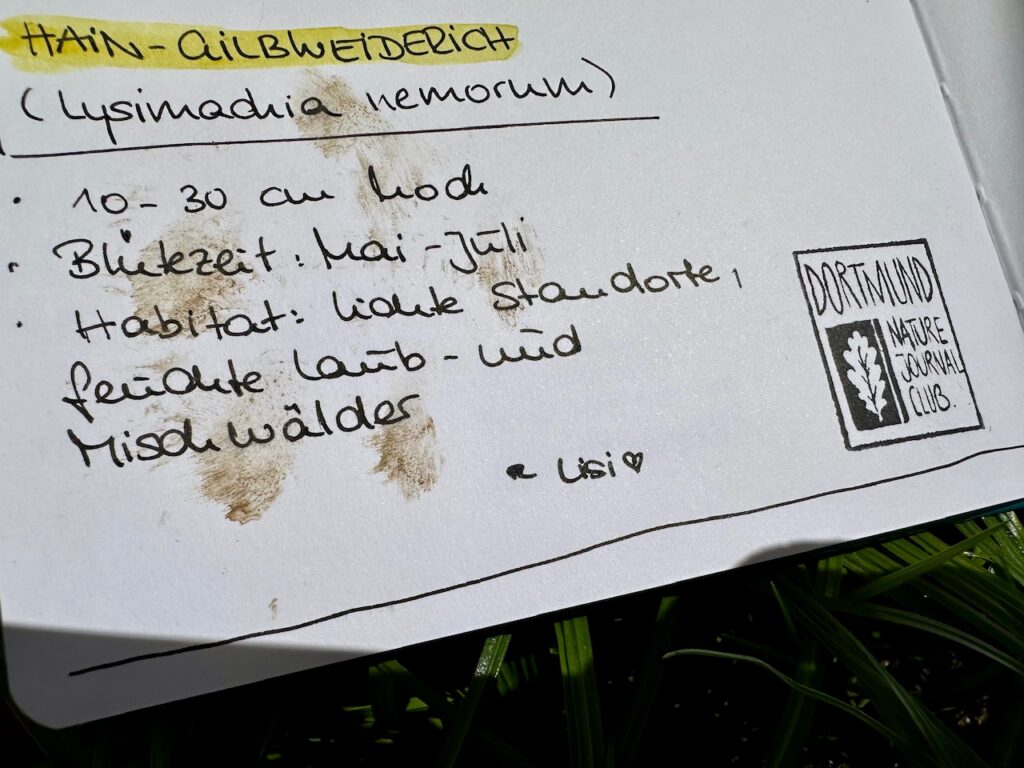 HAIN-GILBWEIDERICH
(Lysimachia nemorum)
· 10-30 cm hoch
· Blütezeit: Mai-Juli
· Habitat: lichte Standorte,
feuchte Laub- und
Mischwälder
Lisi ♡
DORTMUND
NATURE
JOURNAL
CLUB.